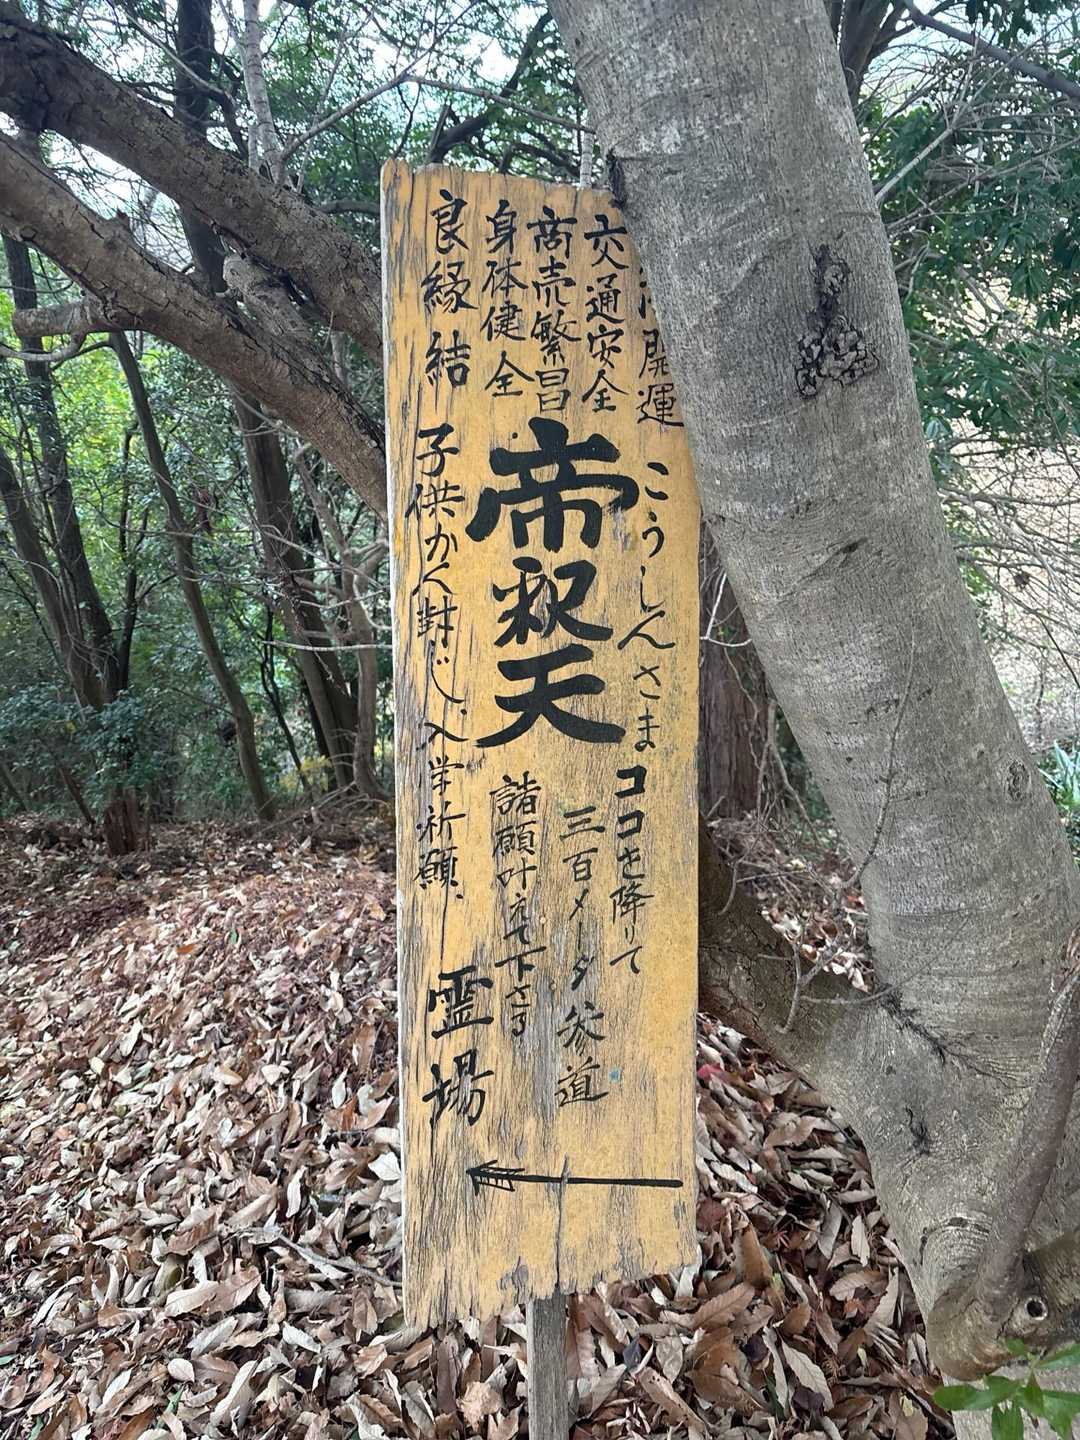 開運
交通安全
商売繁昌
身体健全
良縁結
こうしんさま
帝釈天
子供かん封じ、入学祈願、
ココを降りて
三百メータ参道
諸願叶えて下さる
霊場